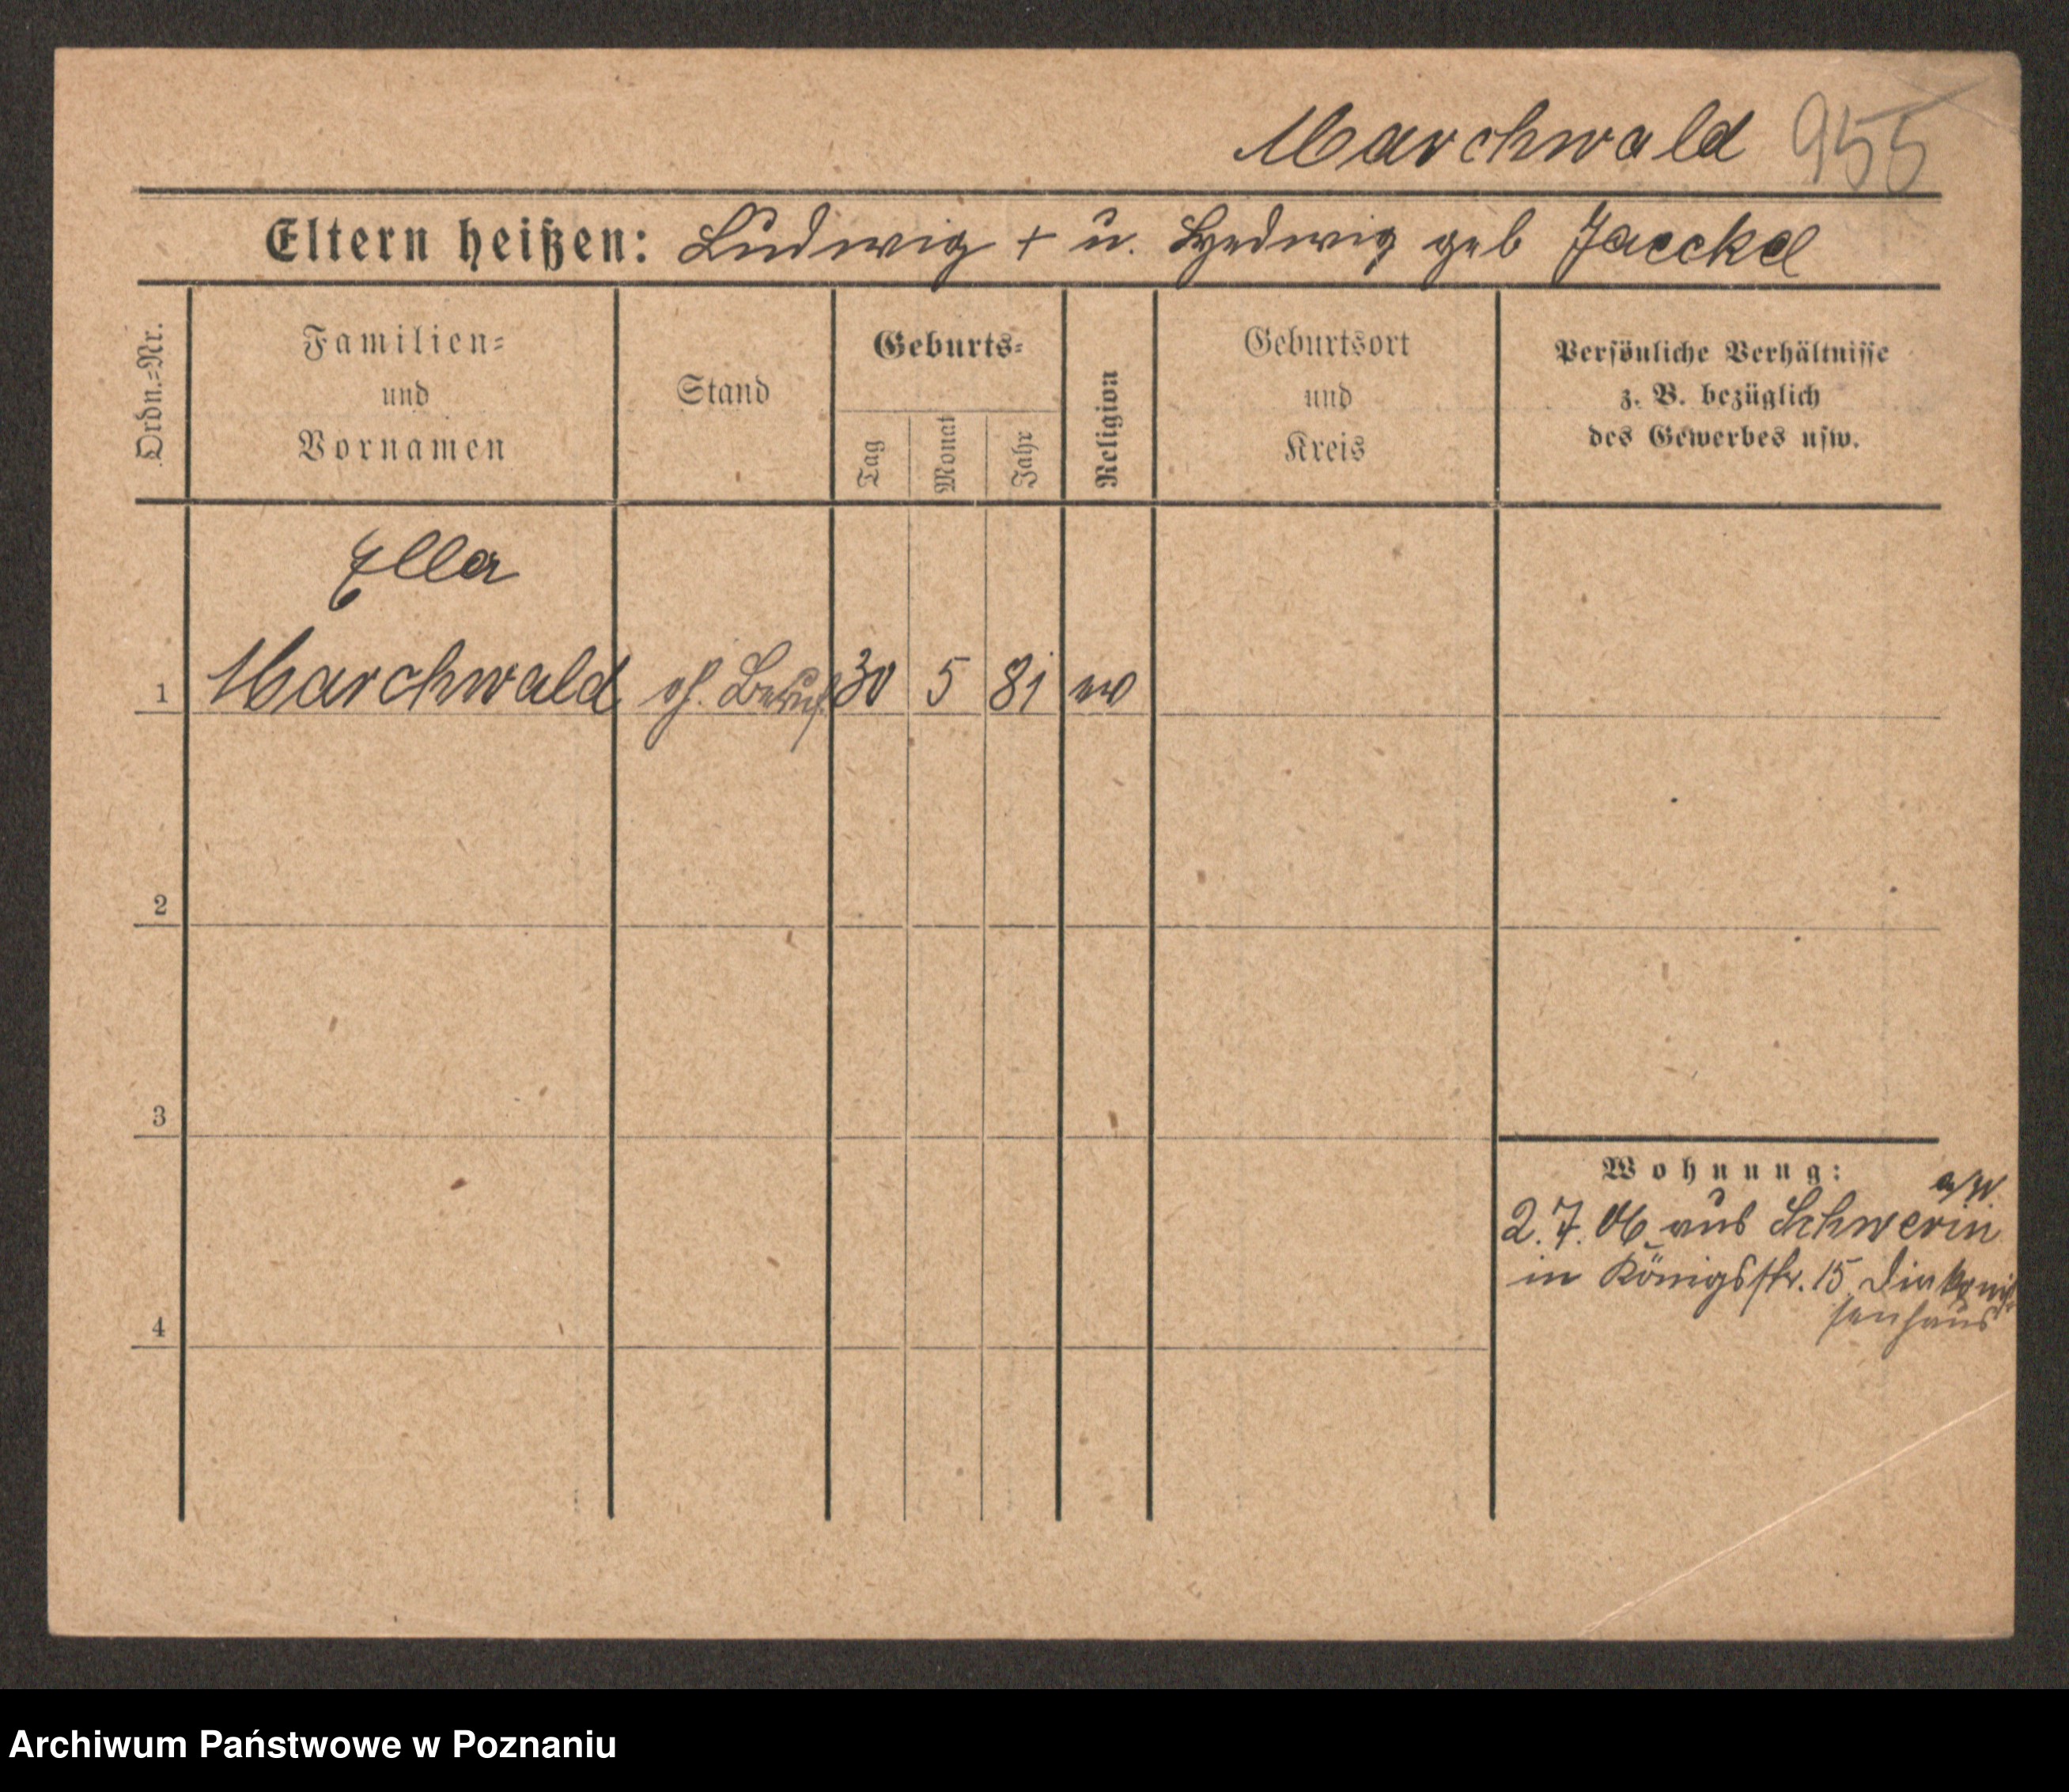 Marchwald 955
Eltern heißen: Ludwig + u. Hedwig geb Jaeckel
Ordn.=Nr.
Familien=
und
Vornamen
Stand
Geburts=
Tag
Monat
Jahr
Religion
Geburtsort
und
Kreis
Persönliche Verhältnisse
z. B. bezüglich
des Gewerbes usw.
Ella
1 Marchwald oh. Beruf 30 5 81 ev
2
3
4
Wohnung:
a/W
2.7.06 aus Schwerin
in Königsstr. 15 Diakonis-
senhaus
Archiwum Państwowe w Poznaniu